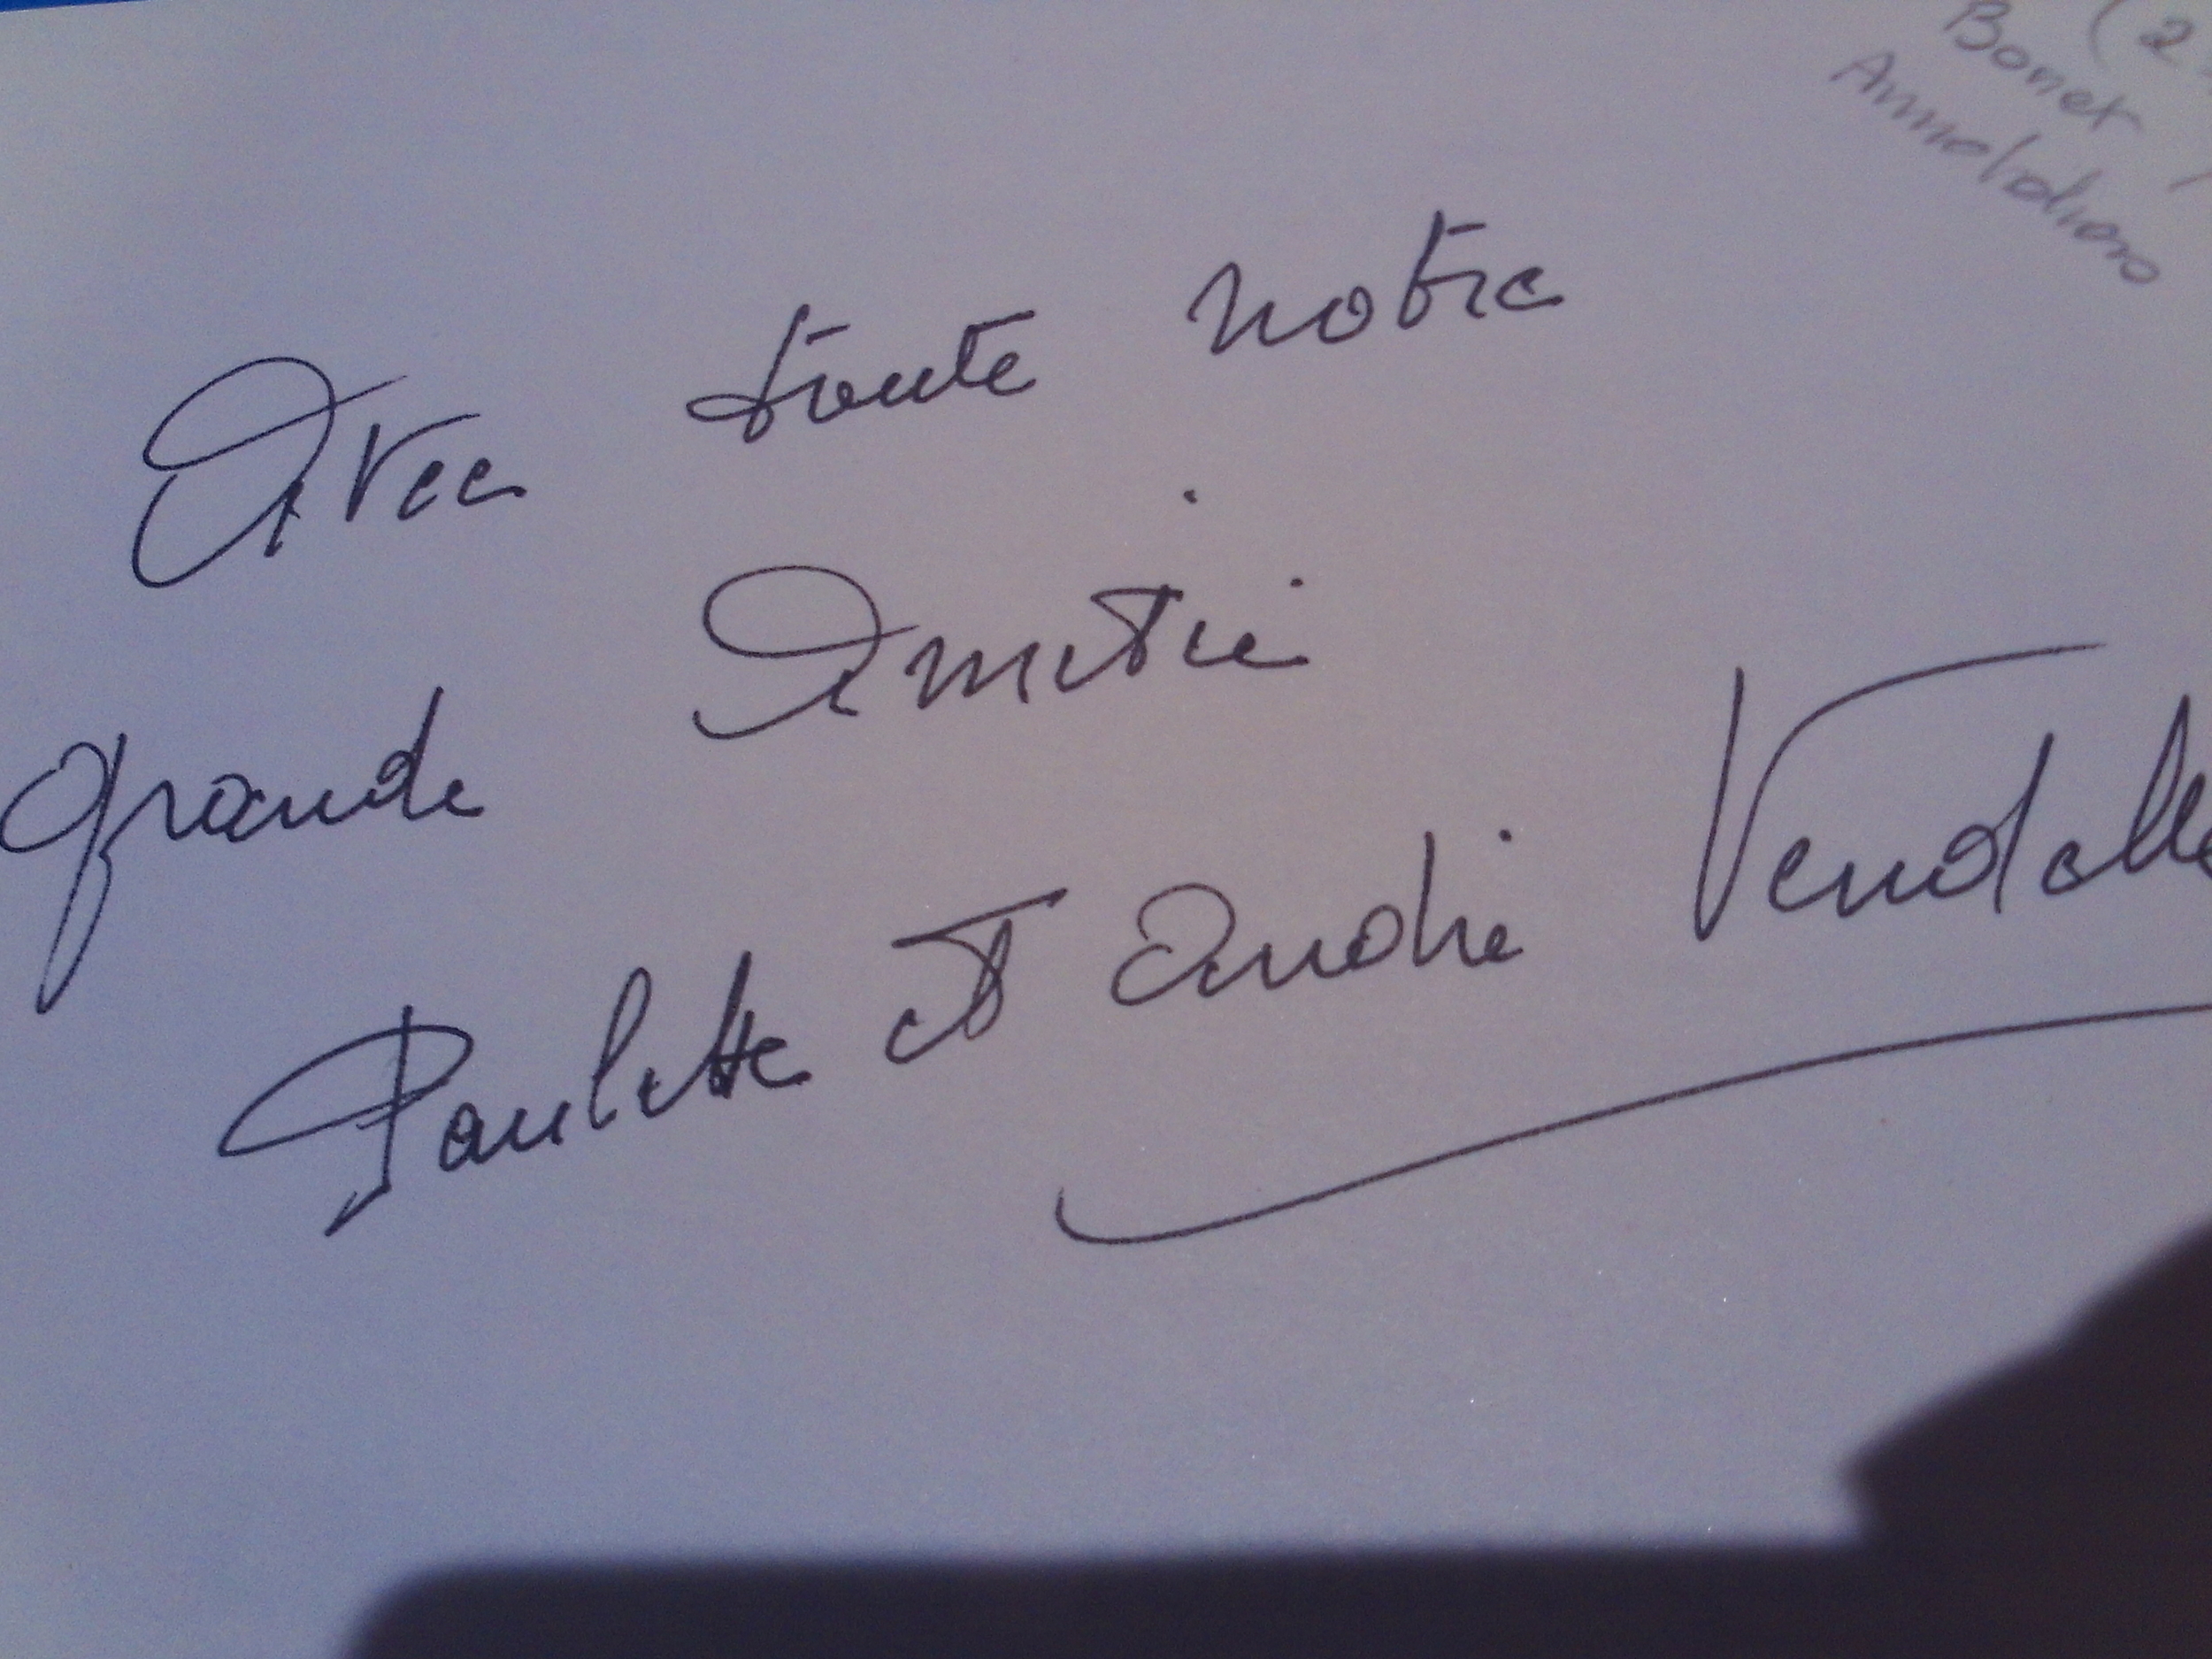 (2
Bonet
Avec toute notre
grande Amitié
Paulette et André Vendelle